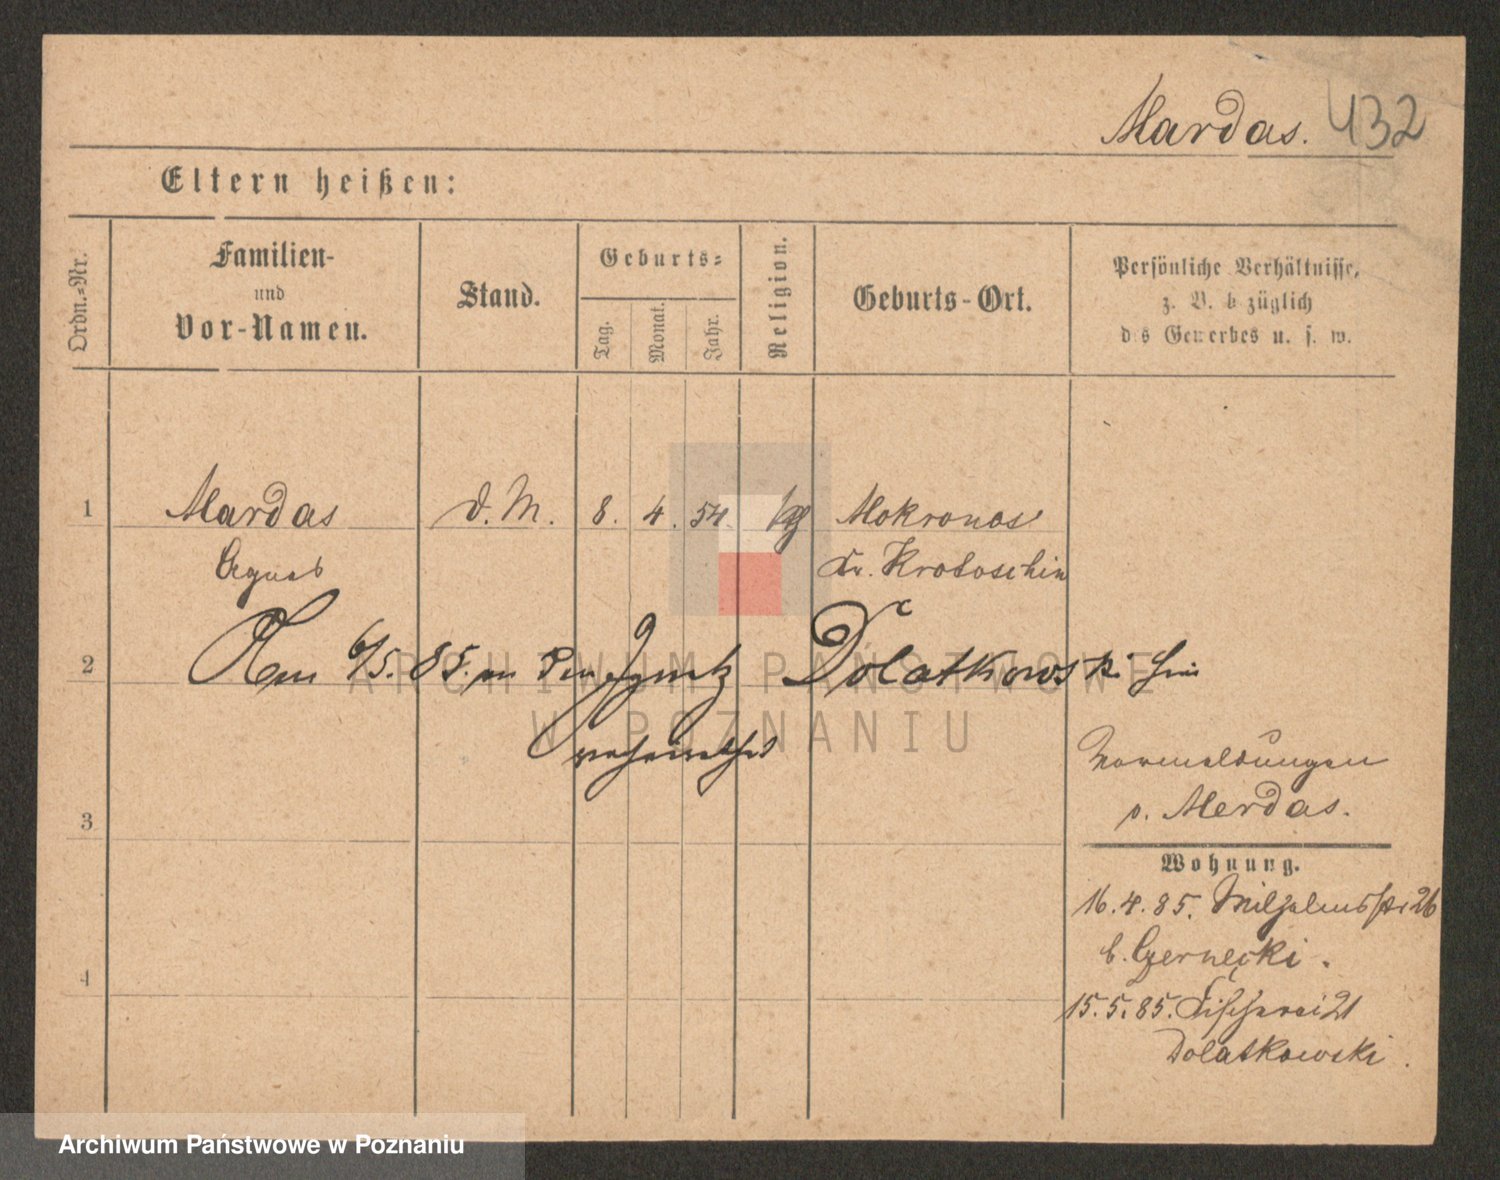 Mardas. 432
Eltern heißen:
Ordn.-Nr.
Familien-
und
Vor-Namen.
Stand.
Geburts-
Tag.
Monat.
Jahr.
Religion.
Geburts-Ort.
Persönliche Verhältnisse,
z. B. b züglich
d s Gewerbes u. s. w.
1 Mardas D. M. 8. 4. 54. Mokronos
Agnes Kr. Krotoschin
2 Am 6/5. 85. m den Ignatz Dolatkowski hier
verheirathet
Vormeldungen
3 v. Merdas.
Wohnung.
16. 4. 85. Wilhelmsstr 26
b. Czernecki.
4
15. 5. 85. Fischerei 21
Dolatkowski.
ARCHIWUM PAŃSTWOWE
W POZNANIU
Archiwum Państwowe w Poznaniu